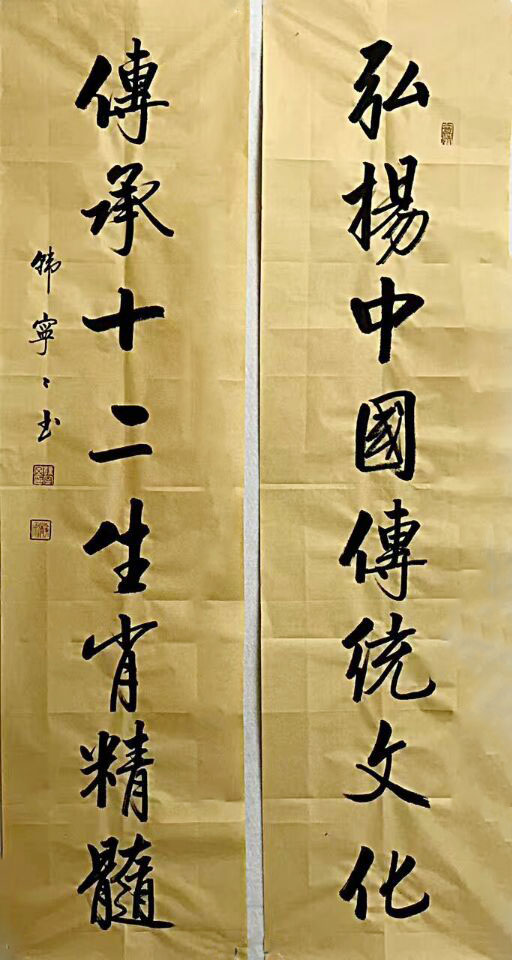 弘揚中國傳統文化
傳承十二生肖精髓
韩寧寧书